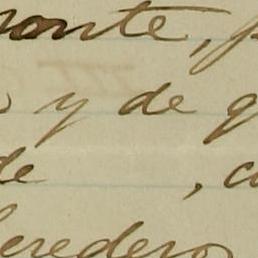 onte,
y de
de , c
heredero